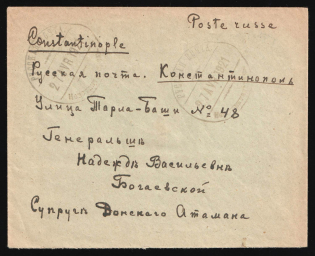 Poste russe
Constantinople
Русская почта. Константинополь
Улица Тарла-Баши № 48
Генеральшѣ
Надеждѣ Васильевнѣ
Богаевской
Супругѣ Донского Атамана